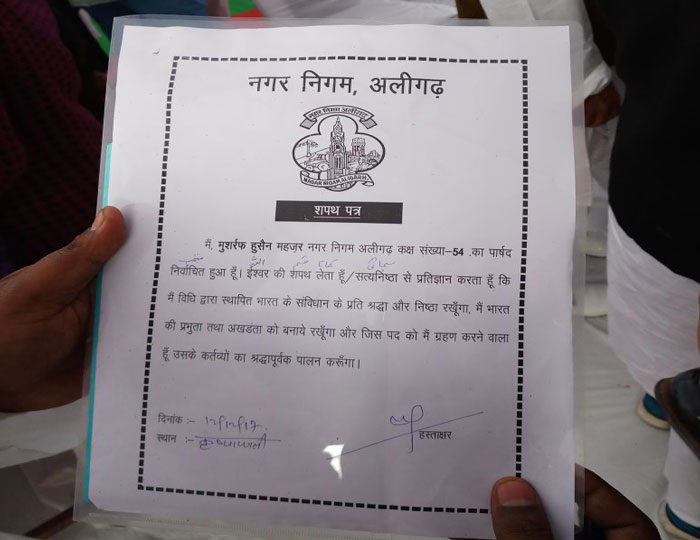 नगर निगम, अलीगढ़
नगर निगम अलीगढ़
NAGAR NIGAM, ALIGARH
शपथ पत्र
मैं, मुशर्रफ हुसैन महज़र नगर निगम अलीगढ़ कक्ष संख्या–54 .का पार्षद
निर्वाचित हुआ हूँ। ईश्वर की शपथ लेता हूँ/सत्यनिष्ठा से प्रतिज्ञान करता हूँ कि
मैं विधि द्वारा स्थापित भारत के संविधान के प्रति श्रद्धा और निष्ठा रखूँगा, मैं भारत
की प्रभुता तथा अखडंता को बनाये रखूँगा और जिस पद को मैं ग्रहण करने वाला
हूँ उसके कर्तव्यों का श्रद्धापूर्वक पालन करूँगा।
दिनांक :- 12/12/17
स्थान :-
हस्ताक्षर